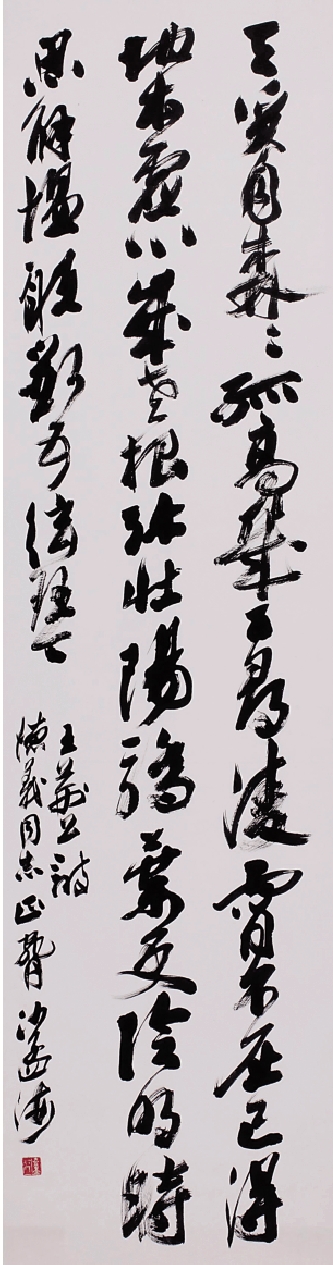 天質自森々孤高幾百尋凌霄不屈己得
地本虚心歲老根弥壯陽驕葉更陰明時
思解愠願斲五絃琴
王荊公詩
義同志正 沙孟海